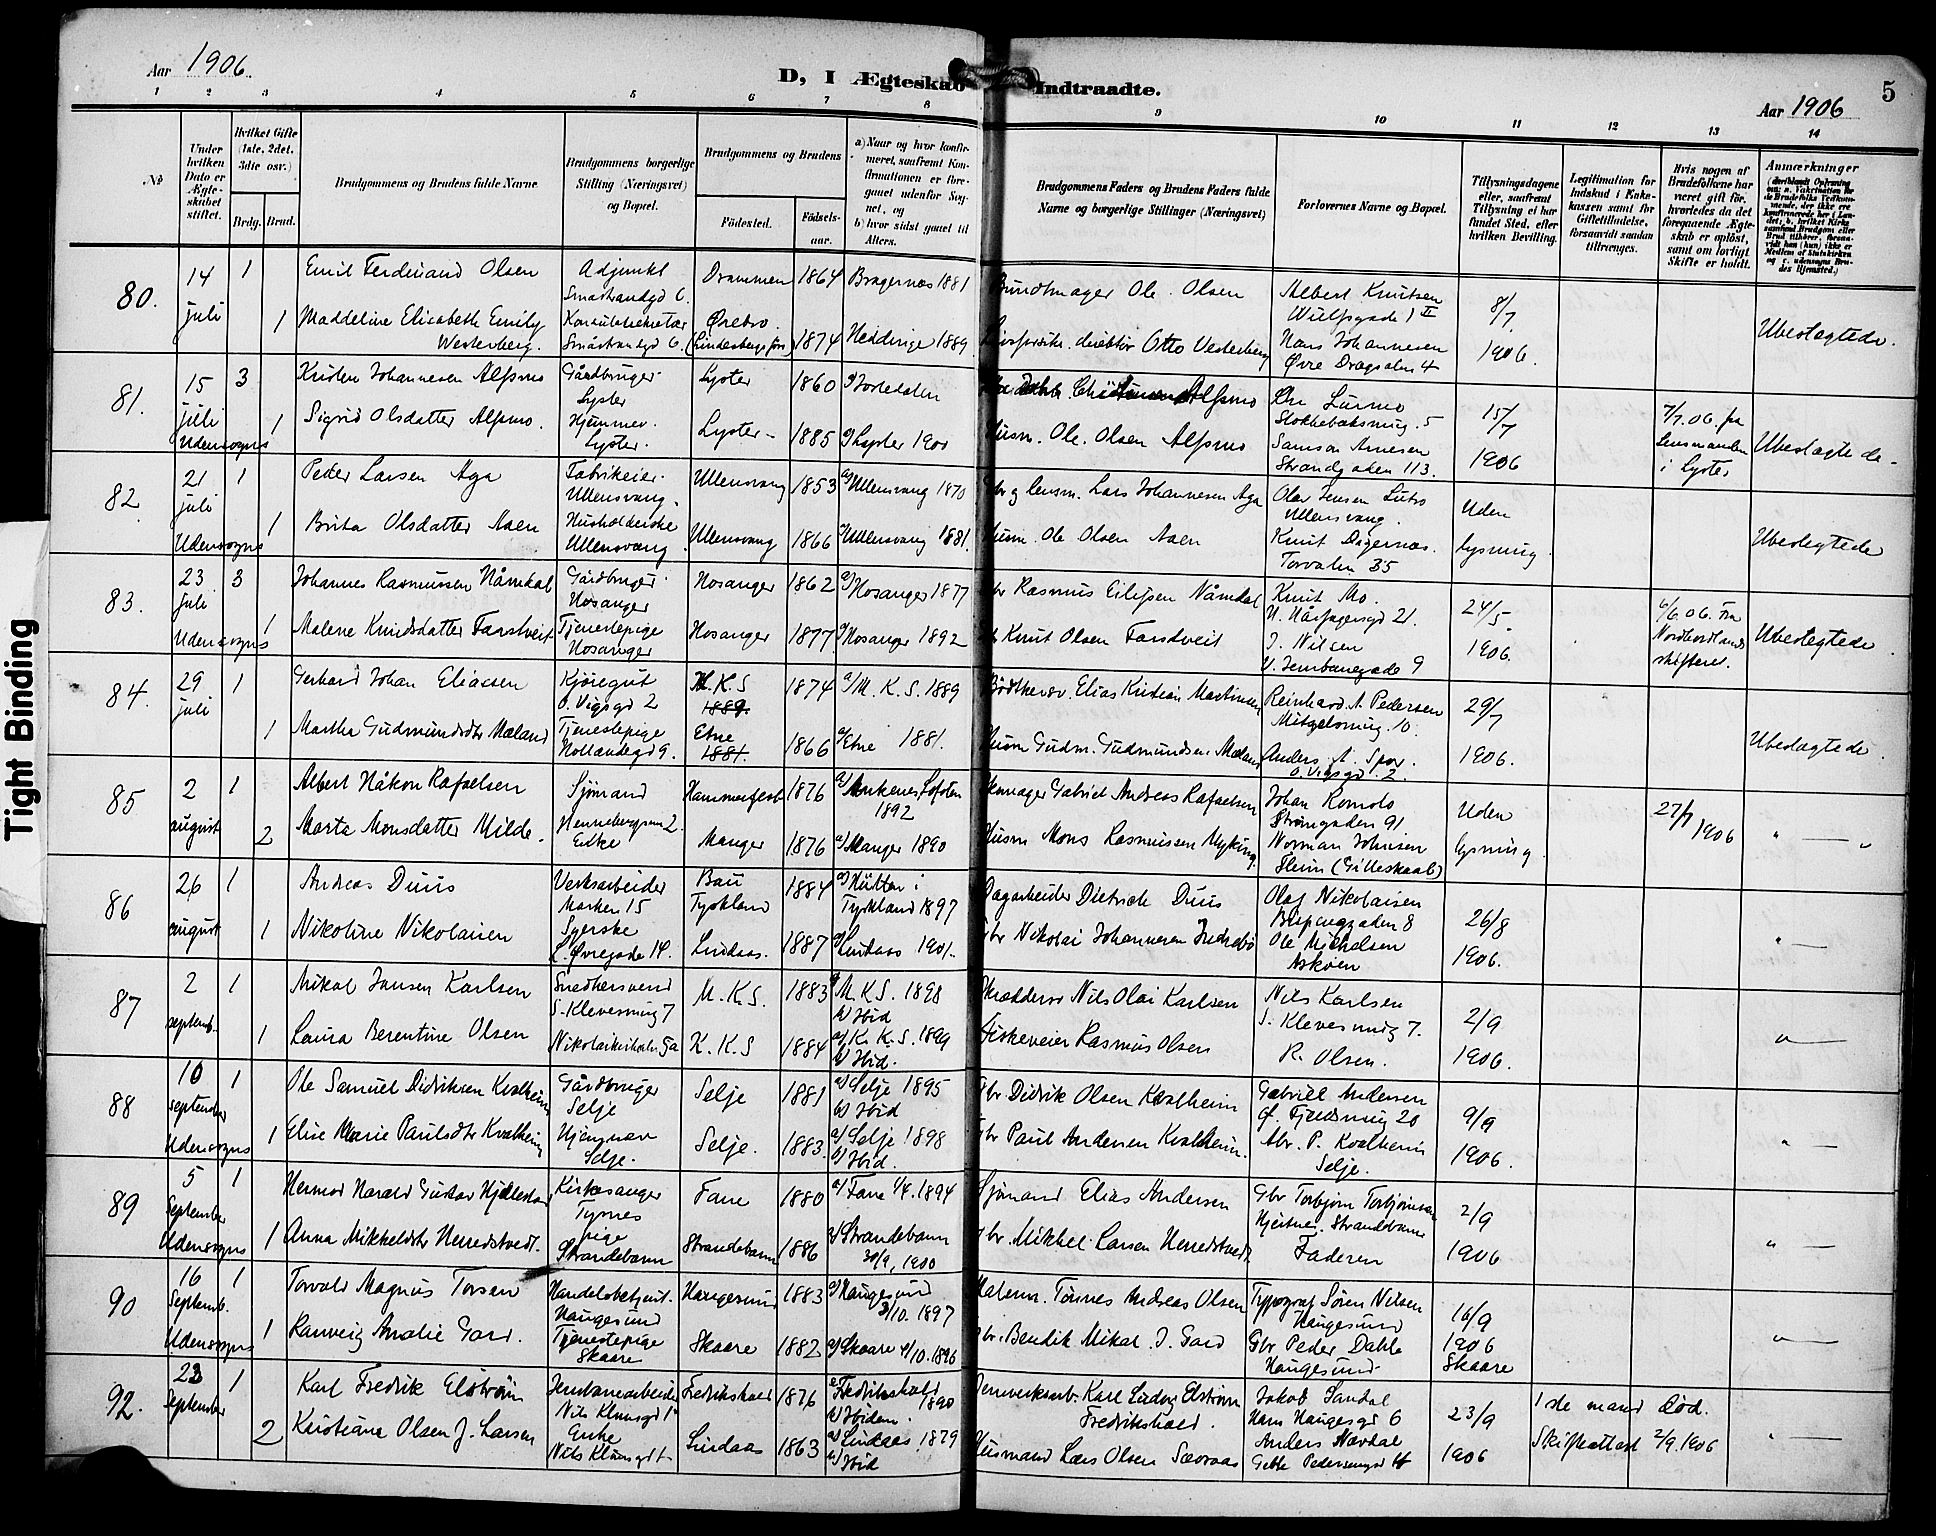 Aar 1906.
D, I Ægteskab Indtraadte.
5
Aar 1906
1 2 3 4 5 6 7 8 9 10 11 12 13 14
No
Under hvilken Dato er Ægteskabet stiftet.
Hvilket Gifte (1ste, 2det, 3die osv.)
Brdg. Brud.
Brudgommens og Brudens fulde Navne
Brudgommens borgerlige Stilling (Næringsvei) og Bopæl.
Brudgommens og Brudens
Födested. Födselsaar.
a) Naar og hvor konfirmeret, saafremt Konfirmationen er foregaaet udenfor Sognet, og b) hvor sidst gaaet til Alters.
Brudgommens Faders og Brudens Faders fulde Navne og borgerlige Stillinger (Næringsvei)
Forlovernes Navne og Bopæl.
Tillysningsdagene eller, saafremt Tillysning ei har fundet Sted, efter hvilken Bevilling.
Legitimation for Indskud i Enkekassen samt for Giftetilladelse, forsaavidt saadan tiltrænges.
Hvis nogen af Brudefolkene har været gift för, hvorledes da det foregaaende Ægteskab er oplöst, samt om lovligt Skifte er holdt.
Anmærkninger
80. 14 juli 1 Emil Ferdinand Olsen Adjunkt Smaastrandgd 6. Drammen 1864 Bragernæs 1881 Bundtmager Ole Olsen Albert Knutsen Wulfsgade 1 II 8/7 1906.
1 Maddeline Elisabeth Emily Westerberg. Smaastrandgd 6. Örebro 1874 1889 direktör Otto Vesterberg Hans Johannesen Øvre Dragsalm 4 Ubeslægtede.
81. 15 juli Udensogns 3 Kristen Johannesen Alsmo Gårdbruger Lyster Lyster 1860 Jostedalen 15/7 1906
1 Sigrid Olsdatter Alsmo. Hjemmev. Lyster. Lyster 1885 a) Lyster 1900 Husm. Ole Olsen Alsmo Samson Arnesen Strandgaden 113. 7/7.06. fra Lensmanden i Lyster Ubeslægtede
82 21 juli Udensogns 1 Peder Larsen Aga Fabrikeier Ullensvang. Ullensvang 1853 a) Ullensvang 1870 Gbr og lensm. Lars Johannesen Aga Olav Jensen Lutro Ullensvang. Uden lysning
1 Brita Olsdatter Aaen Husholderske Ullensvang Ullensvang 1866 a) Ullensvang 1881. Husm. Ole Olsen Aaen Knut Digernæs. Torvalm. 35 Ubeslegtede
83. 23 juli Udensogns 3 Johannes Rasmussen Nåmdal Gårdbruger Hosanger Hosanger 1862 a) Hosanger 1877 Gbr Rasmus Eilifsen Nåmdal Knut Mo. H. Hårfagersgd 21. 24/5 1906.
1 Malene Knudsdatter Farstveit Tjenestepige Hosanger Hosanger 1877 a) Hosanger 1892 Knut Olsen Farstveit J. Nilsen V. Jernbanegade 9 6/6.06. Fra Nordhordlands skifteret. Ubeslegtede
84. 29 juli 1 Gerhard Johan Eliassen Kjøregut O. Vigsgd 2 M.K.S 1889. 1874 a) M.K.S. 1889 Bödtkersv Elias Kristian Martinsen Reinhard A. Pedersen 29/7 1906.
1 Martha Gudmundsdtr Mæland Tjenestepige Hollendergd 9. Etne 1881. 1866 a) Etne 1881. Husm Gudm. Gudmundsen Mæland Anders A. Spor. O. Vigsgd. 2. Ubeslægtede
85 2 august 1 Albert Håkon Rafaelsen Sjømand Henneberggaten 2. Hammerfest 1876 a) Ankenes Lofoten 1892 Skomager Gabriel Andreas Rafaelsen Johan Romslo Strömgaden 91 Uden lysning
2 Marta Monsdatter Milde. Enke Manger 1876 a) Manger 1890 Husm Mons Rasmussen Myking. Norman Johnsen Heim (Gilleskaal) 27/7 1906 " — "
86 26 august 1 Andreas Duus Verksarbeider Marken 15 Bau Tyskland 1884 a) Hütten i Tyskland 1897 Dagarbeider Dietrich Duus Olaf Nikolaisen Bispengaden 8 26/8 1906.
1 Nikoline Nikolaisen Syerske L. Øvregade 14. Lindaas. 1887 a) Lindaas 1901. Gbr Nikolai Johannesen Indrebö Ole Michelsen Askøen " —
87 2 septemb. 1 Mikal Jansen Karlsen Snedkersvend S. Klevesmug 7 M.K.S. 1883 a) M.K.S. 1898 b) Ibid Skreddersv Nils Olai Karlsen Nils Karlsen S. Klevesmug 7. 2/9 1906.
1 Laura Berentine Olsen Nikolaikirkealm. 5a K.K.S 1884 a) K.K.S. 1899 b) Ibid. Fiskeveier Rasmus Olsen R. Olsen. " —
88 10 september Udensogns 1 Ole Samuel Didriksen Kvalheim Gårdbruger Selje Selje 1881 a) Selje 1895 b) Ibid Gbr. Didrik Olsen Kvalheim Gabriel Andersen 9/9 1906.
1 Elise Marie Paulsdtr Kvalheim Hjemmev Selje. Selje. 1883. a) Selje 1898 b) Ibid. Gbr Paul Andersen Kvalheim. Abr. P. Kvalheim Selje. " —
89 5 September Udensogns 1 Hermod Harald Gustav Hjellestad Kirkesanger Tysnes Fane 1880 a) Fane 1/4. 1894 Sjømand Elias Andersen Gbr Torbjørn Torbjørnsen Strandebarm 2/9 1906
1 Anna Mikkelsdtr Herredstvedt. pige Strandebarm Strandebarm 1886 a) Strandebarm 30/9, 1900 Gbr. Mikkel Larsen Herredstvedt Faderen " —
90 16 Septemb. Udensogns 1 Torvald Magnus Torsen Handelsbetjent. Haugesund Haugesund 1883 a) Haugesund 3/10. 1897 Matern. Tönnes Andreas Olsen Typograf Sören Nilsen Haugesund 16/9 1906 Skaare
1 Ranveig Amalie Gard. Tjenestepige Skaare Skaare 1882 a) Skaare 4/10. 1896 Gbr. Bendik Mikal J. Gard Gbr Peder Dahle Haugesund. " —
92. 23 September 1 Karl Fredrik Elström Jernbanearbeider Nils Klimsgd 1 Fredrikshald 1876 a) Fredrikshald 1890 b) Ibidem. Jernverksarb. Karl Ludvig Elström Fredrikshald. Jakob Sandal Hans Haugesgd 6 23/9 1906 1ste mand död.
2 Kristiane Olsen f. Larsen Enke Nils Klimsgd 1 Lindaas 1863 a) Lindaas 1879 b) Ibid Husmand Lars Olsen Sævraas Anders Nævdal Gebh. Pedersensgd 4 Skifteattest 2/9.1906 " —
Tight Binding